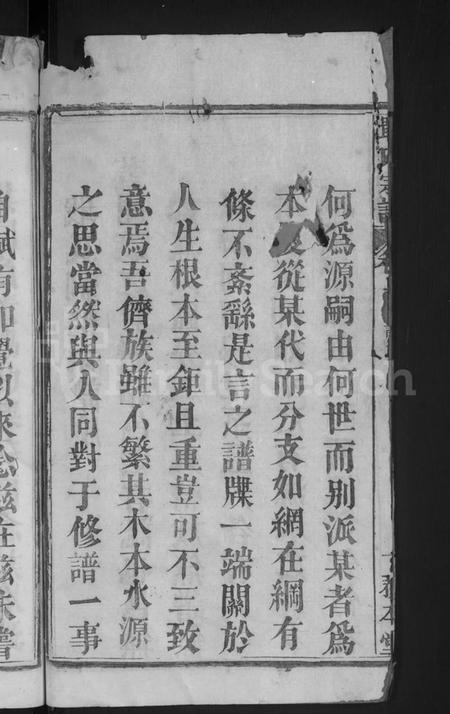 何爲源嗣由何世而別派某者爲
本
從某代而分支如網在綱有
條不紊繇是言之譜牒一端關於
人生根本至鉅且重豈可不三致
意焉吾儕族雖不繁其木本水源
之思當然與人同對于修譜一事
自賦有知覺以來念茲在茲未嘗
宗譜
本堂
FamilySearch